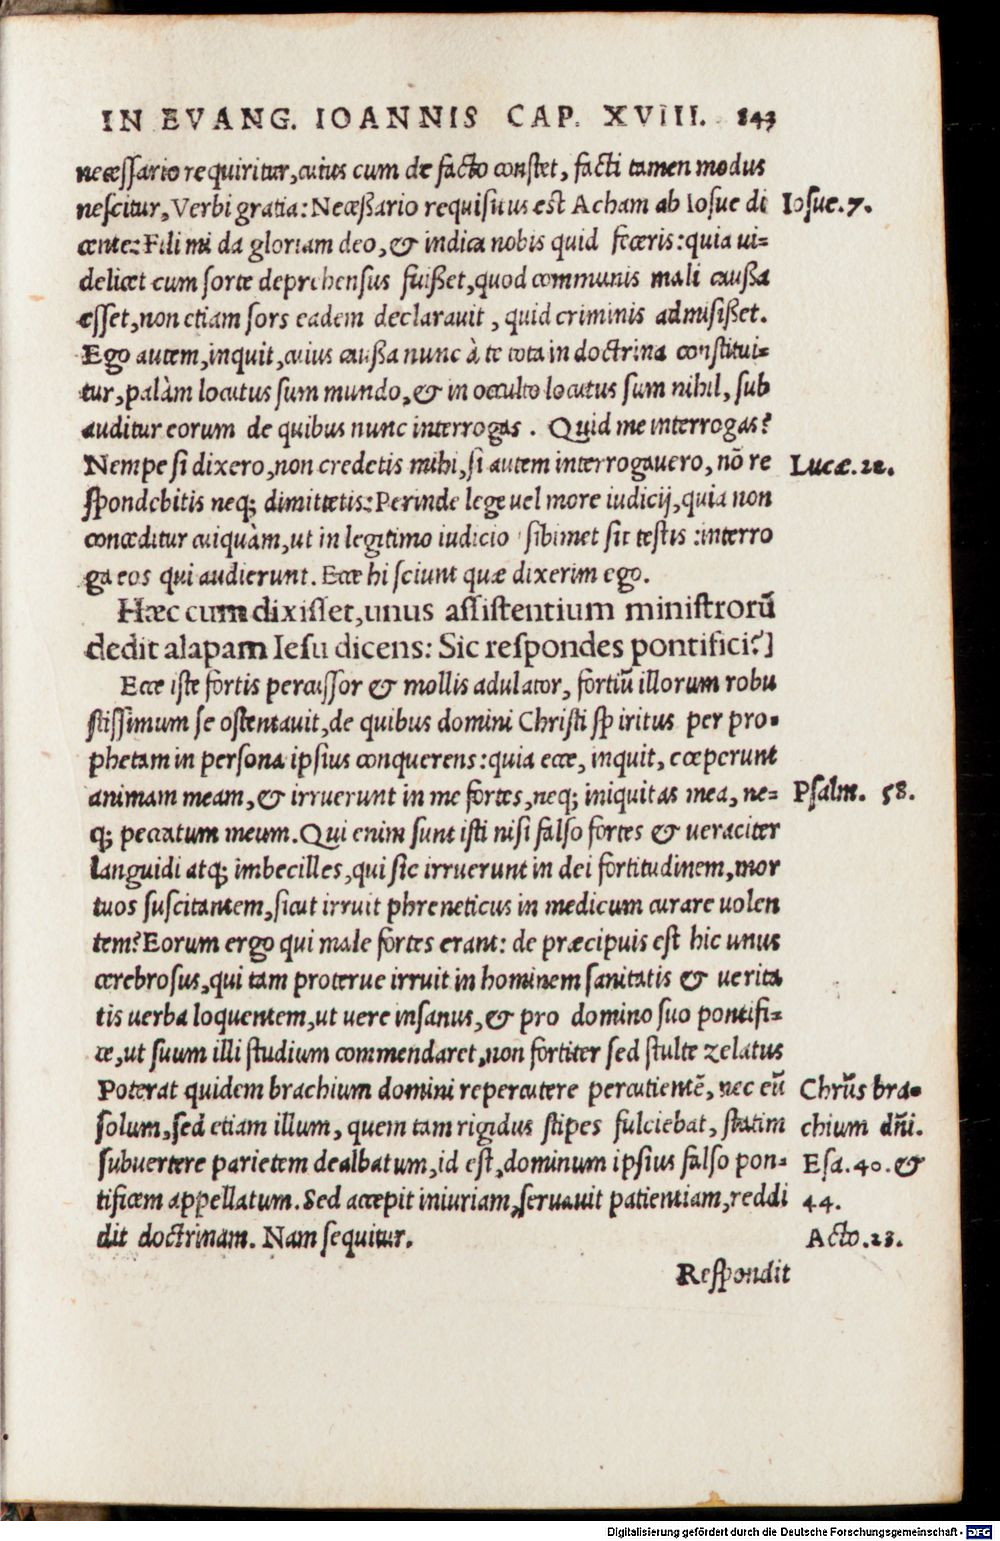 IN EVANG. IOANNIS CAP. XVIII. 843
necessario requiritur, cuius cum de facto constet, facti tamen modus
nescitur, Verbi gratia: Necessario requisitus est Acham ab Iosue di
Iosue. 7.
cente: Fili mi da gloriam deo, & indica nobis quid feceris: quia ui-
delicet cum sorte deprehensus fuißet, quod communis mali caußa
esset, non etiam sors eadem declarauit, quid criminis admisißet.
Ego autem, inquit, cuius caußa nunc à te tota in doctrina constitui-
tur, palàm locutus sum mundo, & in occulto locutus sum nihil, sub
auditur eorum de quibus nunc interrogas. Quid me interrogas?
Nempe si dixero, non credetis mihi, si autem interrogauero, nō re
Lucæ. 22.
spondebitis neq; dimittetis: Perinde lege uel more iudicij, quia non
conceditur cuiquàm, ut in legitimo iudicio sibimet sit testis: interro
ga eos qui audierunt. Ecce hi sciunt quæ dixerim ego.
Hæc cum dixisset, unus assistentium ministrorū
dedit alapam Iesu dicens: Sic respondes pontifici?]
Ecce iste fortis percussor & mollis adulator, fortiū illorum robu
stissimum se ostentauit, de quibus domini Christi spiritus per pro-
phetam in persona ipsius conquerens: quia ecce, inquit, cœperunt
animam meam, & irruerunt in me fortes, neq; iniquitas mea, ne-
Psalm. 58.
q; peccatum meum. Qui enim sunt isti nisi falso fortes & ueraciter
languidi atq; imbecilles, qui sic irruerunt in dei fortitudinem, mor
tuos suscitantem, sicut irruit phreneticus in medicum curare uolen
tem? Eorum ergo qui male fortes erant: de præcipuis est hic unus
cerebrosus, qui tam proterue irruit in hominem sanitatis & uerita
tis uerba loquentem, ut uere insanus, & pro domino suo pontifi-
ce, ut suum illi studium commendaret, non fortiter sed stulte zelatus
Poterat quidem brachium domini repercutere percutientē, nec eū
Chrūs bra-
solum, sed etiam illum, quem tam rigidus stipes fulciebat, statim
chium dn̄i.
subuertere parietem dealbatum, id est, dominum ipsius falso pon-
Esa. 40. &
tificem appellatum. Sed accepit iniuriam, seruauit patientiam, reddi
44.
dit doctrinam. Nam sequitur.
Acto. 23.
Respondit
Digitalisierung gefördert durch die Deutsche Forschungsgemeinschaft - DFG